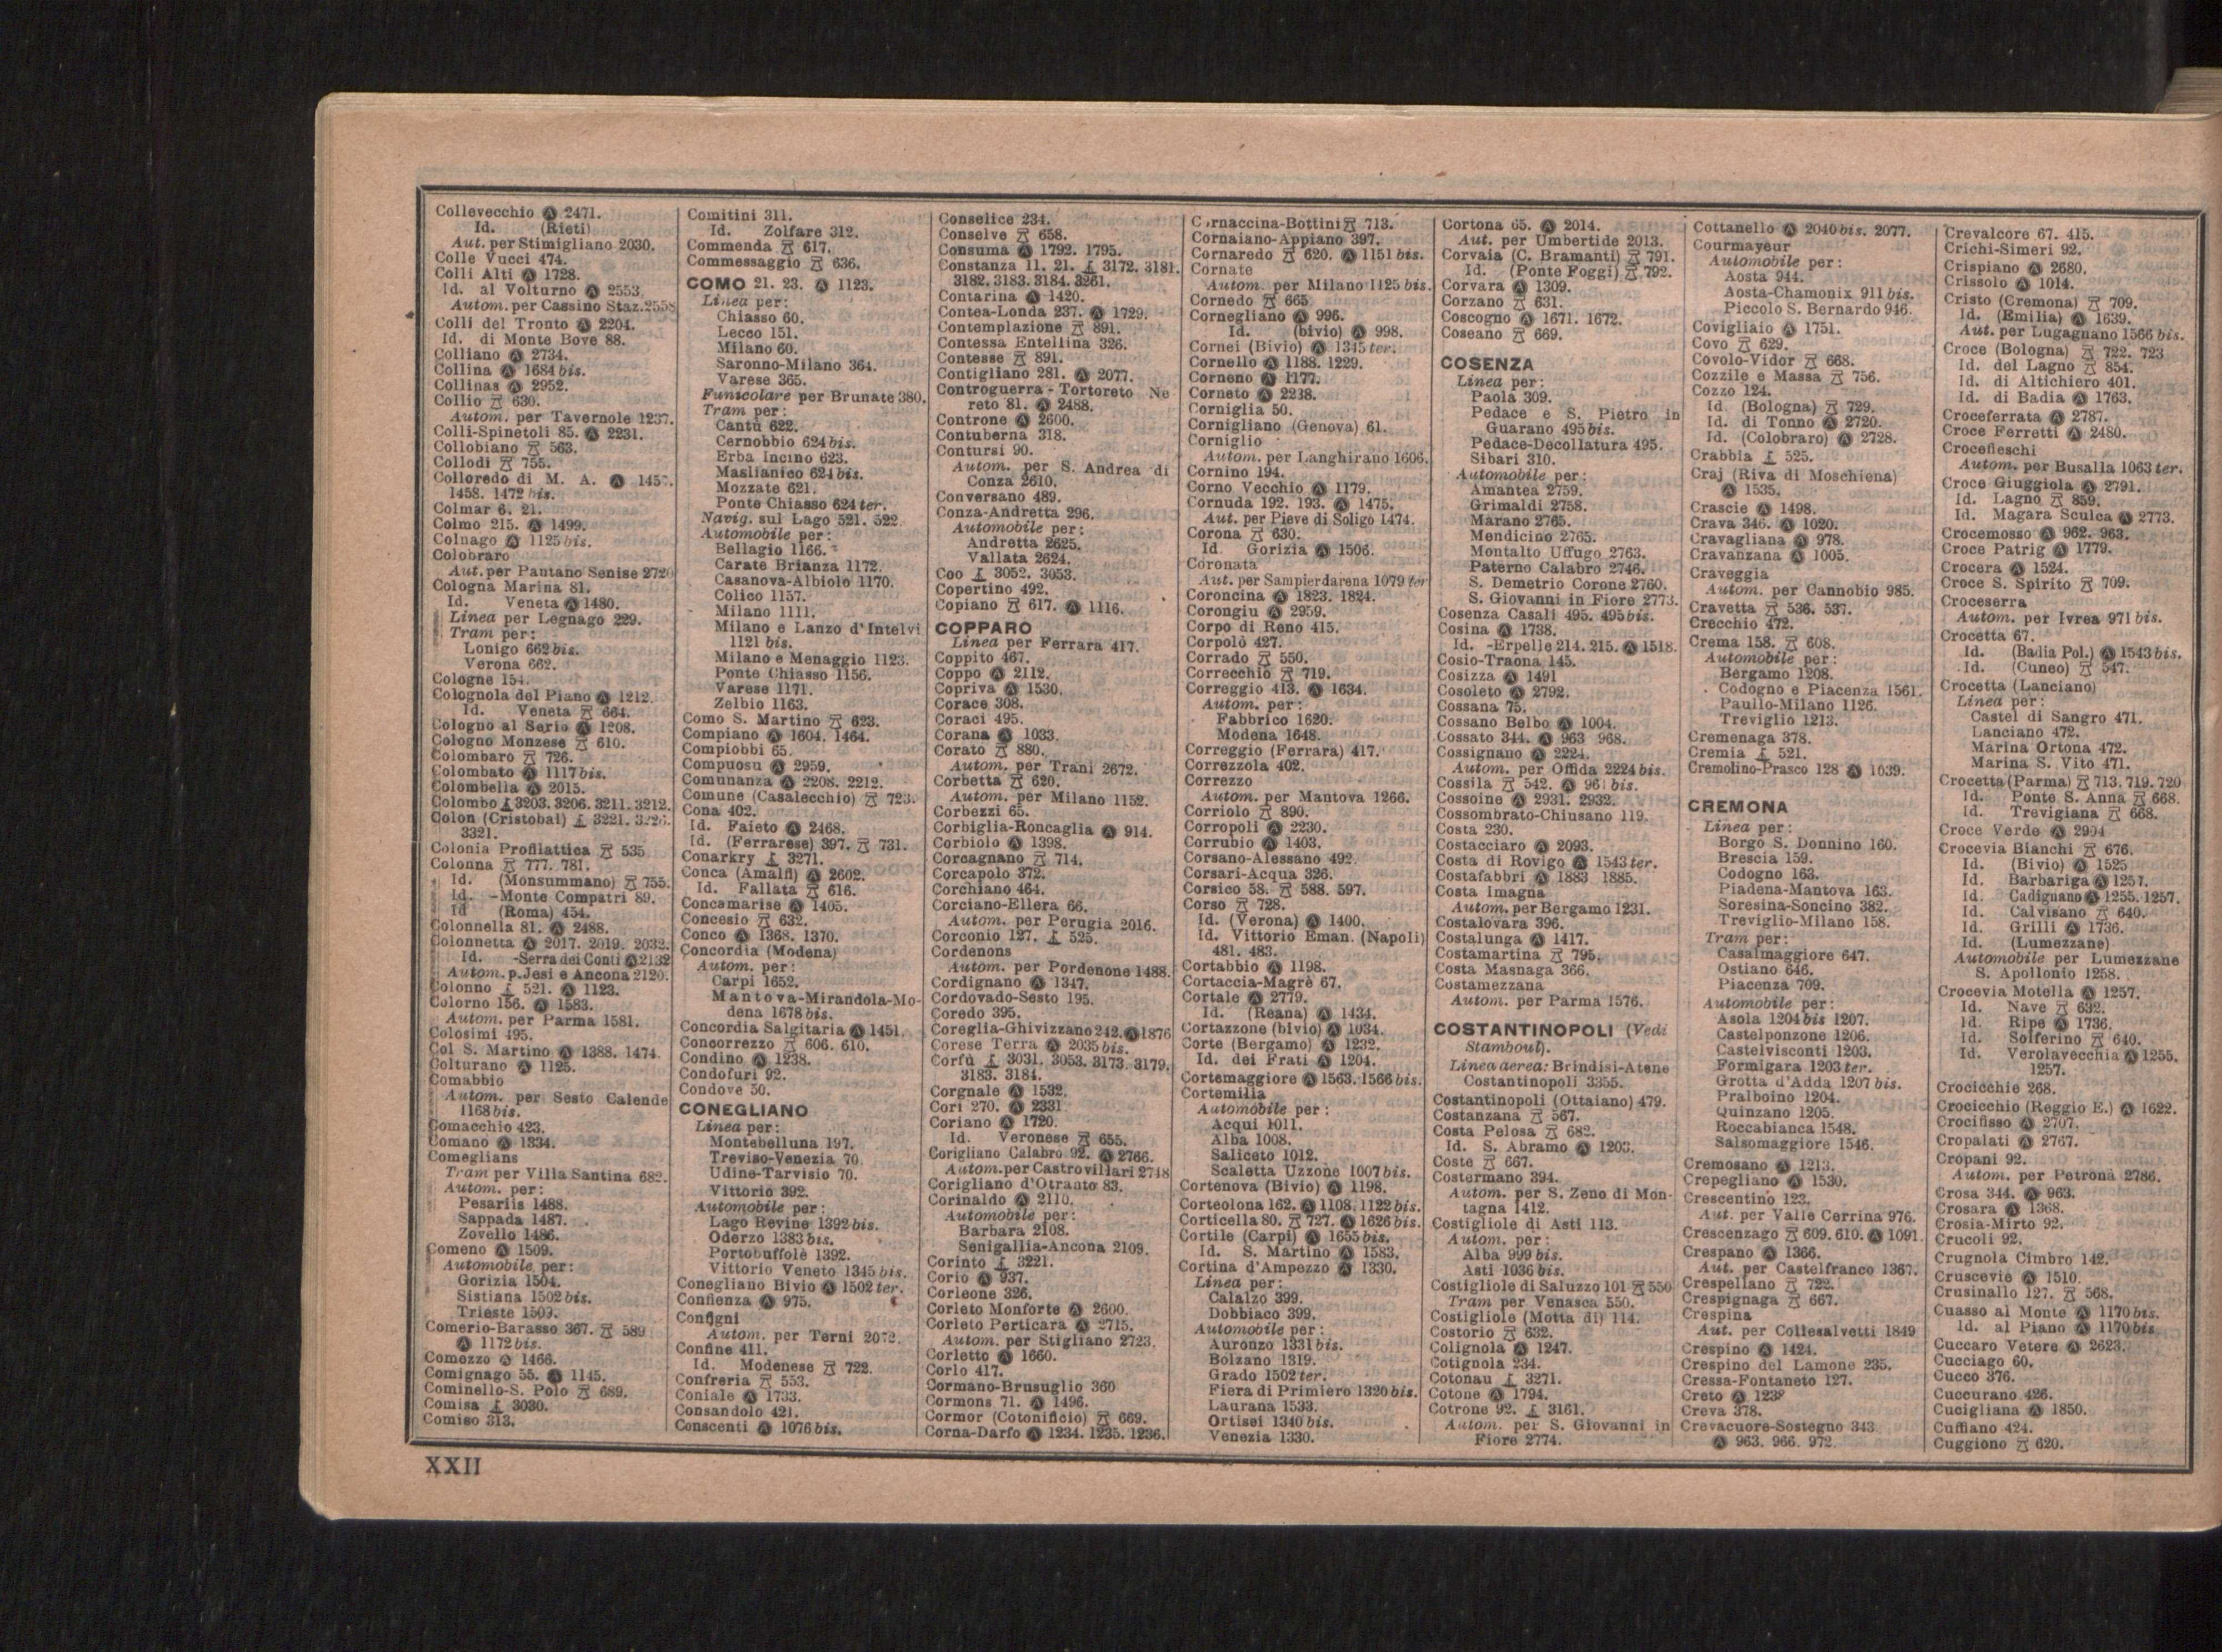 Collevecchio Ⓐ 2471.
Id. (Rieti)
Aut. per Stimigliano 2030.
Colle Vucci 474.
Colli Alti Ⓐ 1728.
Id. al Volturno Ⓐ 2553
Autom. per Cassino Staz. 2558
Colli del Tronto Ⓐ 2204.
Id. di Monte Bove 88.
Colliano Ⓐ 2734.
Collina Ⓐ 1684 bis.
Collinas Ⓐ 2952.
Collio 630.
Autom. per Tavernole 1237.
Colli-Spinetoli 85. Ⓐ 2231.
Collobiano 563.
Collodi 755.
Colloredo di M. A. Ⓐ
1458. 1472 bis.
Colmar 6. 21.
Colmo 215. Ⓐ 1499.
Colnago Ⓐ 1125 bis.
Colobraro
Aut. per Pantano Senise
Cologna Marina 81.
Id. Veneta Ⓐ 1480.
Linea per Legnago 229.
Tram per:
Lonigo 662 bis.
Verona 662.
Cologne 154.
Colognola del Piano Ⓐ 1212.
Id. Veneta 664.
Cologno al Serio Ⓐ 1208.
Cologno Monzese 610.
Colombaro 726.
Colombato Ⓐ 1117 bis.
Colombella Ⓐ 2015.
Colombo 3203. 3206. 3211. 3212.
Colon (Cristobal) 3221.
3321.
Colonia Profilattica 535
Colonna 777. 781.
Id. (Monsummano) 755.
Id. -Monte Compatri 89.
Id (Roma) 454.
Colonnella 81. Ⓐ 2488.
Colonnetta Ⓐ 2017. 2019. 2032.
Id. -Serra dei Conti Ⓐ 2132
Autom. p. Jesi e Ancona 2120.
Colonno 521. Ⓐ 1123.
Colorno 156. Ⓐ 1583.
Autom. per Parma 1581.
Colosimi 495.
Col S. Martino Ⓐ 1388. 1474.
Colturano Ⓐ 1125.
Comabbio
Autom. per Sesto Calende
1168 bis.
Comacchio 423.
Comano Ⓐ 1334.
Comeglians
Tram per Villa Santina 682.
Autom. per:
Pesariis 1488.
Sappada 1487.
Zovello 1486.
Comeno Ⓐ 1509.
Automobile per:
Gorizia 1504.
Sistiana 1502 bis.
Trieste 1509.
Comerio-Barasso 367. 589
Ⓐ 1172 bis.
Comezzo Ⓐ 1466.
Comignago 55. Ⓐ 1145.
Cominello-S. Polo 689.
Comisa 3030.
Comiso 313.
Comitini 311.
Id. Zolfare 312.
Commenda 617.
Commessaggio 636.
COMO 21. 23. Ⓐ 1123.
Linea per:
Chiasso 60.
Lecco 151.
Milano 60.
Saronno-Milano 364.
Varese 365.
Funicolare per Brunate 380.
Tram per:
Cantù 622.
Cernobbio 624 bis.
Erba Incino 623.
Maslianico 624 bis.
Mozzate 621.
Ponte Chiasso 624 ter.
Navig. sul Lago 521. 522.
Automobile per:
Bellagio 1166.
Carate Brianza 1172.
Casanova-Albiolo 1170.
Colico 1157.
Milano 1111.
Milano e Lanzo d'Intelvi
1121 bis.
Milano e Menaggio 1123.
Ponte Chiasso 1156.
Varese 1171.
Zelbio 1163.
Como S. Martino 623.
Compiano Ⓐ 1604. 1464.
Compiobbi 65.
Compuosu Ⓐ 2959.
Comunanza Ⓐ 2208. 2212.
Comune (Casalecchio) 723.
Cona 402.
Id. Faieto Ⓐ 2468.
Id. (Ferrarese) 397. 731.
Conarkry 3271.
Conca (Amalfi) Ⓐ 2602.
Id. Fallata 616.
Concamarise Ⓐ 1405.
Concesio 632.
Conco Ⓐ 1368. 1370.
Concordia (Modena)
Autom. per:
Carpi 1652.
Mantova-Mirandola-Mo-
dena 1678 bis.
Concordia Salgitaria Ⓐ 1451.
Concorrezzo 606. 610.
Condino Ⓐ 1238.
Condofuri 92.
Condove 50.
CONEGLIANO
Linea per:
Montebelluna 197.
Treviso-Venezia 70
Udine-Tarvisio 70.
Vittorio 392.
Automobile per:
Lago Revine 1392 bis.
Oderzo 1383 bis.
Portobuffolè 1392.
Vittorio Veneto 1345 bis.
Conegliano Bivio Ⓐ 1502 ter.
Confienza Ⓐ 975.
Configni
Autom. per Terni 2072.
Confine 411.
Id. Modenese 722.
Confreria 553.
Coniale Ⓐ 1733.
Consandolo 421.
Conscenti Ⓐ 1076 bis.
Conselice 234.
Conselve 658.
Consuma Ⓐ 1792. 1795.
Constanza 11. 21. 3172. 3181.
3182. 3183. 3184. 3261.
Contarina Ⓐ 1420.
Contea-Londa 237. Ⓐ 1729.
Contemplazione 891.
Contessa Entellina 326.
Contesse 891.
Contigliano 281. Ⓐ 2077.
Controguerra - Tortoreto Ne
reto 81. Ⓐ 2488.
Controne Ⓐ 2600.
Contuberna 318.
Contursi 90.
Autom. per S. Andrea di
Conza 2610.
Conversano 489.
Conza-Andretta 296.
Automobile per:
Andretta 2625.
Vallata 2624.
Coo 3052. 3053.
Copertino 492.
Copiano 617. Ⓐ 1116.
COPPARO
Linea per Ferrara 417.
Coppito 467.
Coppo Ⓐ 2112.
Copriva Ⓐ 1530.
Corace 308.
Coraci 495.
Corana Ⓐ 1033.
Corato 880.
Autom. per Trani 2672.
Corbetta 620.
Autom. per Milano 1152.
Corbezzi 65.
Corbiglia-Roncaglia Ⓐ 914.
Corbiolo Ⓐ 1398.
Corcagnano 714.
Corcapolo 372.
Corchiano 464.
Corciano-Ellera 66.
Autom. per Perugia 2016.
Corconio 127. 525.
Cordenons
Autom. per Pordenone 1488.
Cordignano Ⓐ 1347.
Cordovado-Sesto 195.
Coredo 395.
Coreglia-Ghivizzano 242. Ⓐ 1876
Corese Terra Ⓐ 2035 bis.
Corfù 3031. 3053. 3173. 3179.
3183. 3184.
Corgnale Ⓐ 1532.
Cori 270. Ⓐ 2331
Coriano Ⓐ 1720.
Id. Veronese 655.
Corigliano Calabro 92. Ⓐ 2766.
Autom. per Castrovillari 2748
Corigliano d'Otranto 83.
Corinaldo Ⓐ 2110.
Automobile per:
Barbara 2108.
Senigallia-Ancona 2109.
Corinto 3221.
Corio Ⓐ 937.
Corleone 326.
Corleto Monforte Ⓐ 2600.
Corleto Perticara Ⓐ 2715.
Autom. per Stigliano 2723.
Corletto Ⓐ 1660.
Corlo 417.
Cormano-Brusuglio 360
Cormons 71. Ⓐ 1496.
Cormor (Cotonificio) 669.
Corna-Darfo Ⓐ 1234. 1235. 1236.
Cornaccina-Bottini 713.
Cornaiano-Appiano 397.
Cornaredo 620. Ⓐ 1151 bis.
Cornate
Autom. per Milano 1125 bis.
Cornedo 665
Cornegliano Ⓐ 996.
Id. (bivio) Ⓐ 998.
Cornei (Bivio) Ⓐ 1345 ter.
Cornello Ⓐ 1188. 1229.
Corneno Ⓐ 1177.
Corneto Ⓐ 2238.
Corniglia 50.
Cornigliano (Genova) 61.
Corniglio
Autom. per Langhirano 1606.
Cornino 194.
Corno Vecchio Ⓐ 1179.
Cornuda 192. 193. Ⓐ 1475.
Aut. per Pieve di Soligo 1474.
Corona 630.
Id Gorizia Ⓐ 1506.
Coronata
Aut. per Sampierdarena 1079 ter
Coroncina Ⓐ 1823. 1824.
Corongiu Ⓐ 2959.
Corpo di Reno 415.
Corpolò 427.
Corrado 550.
Correcchio 719.
Correggio 413. Ⓐ 1634.
Autom. per:
Fabbrico 1620.
Modena 1648.
Correggio (Ferrara) 417.
Correzzola 402.
Correzzo
Autom. per Mantova 1266.
Corriolo 890.
Corropoli Ⓐ 2230.
Corrubio Ⓐ 1403.
Corsano-Alessano 492.
Corsari-Acqua 326.
Corsico 58. 588. 597.
Corso 728.
Id. (Verona) Ⓐ 1400.
Id. Vittorio Eman. (Napoli)
481. 483.
Cortabbio Ⓐ 1198.
Cortaccia-Magrè 67.
Cortale Ⓐ 2779.
Id. (Reana) Ⓐ 1434.
Cortazzone (bivio) Ⓐ 1034.
Corte (Bergamo) Ⓐ 1232.
Id. dei Frati Ⓐ 1204.
Cortemaggiore Ⓐ 1563. 1566 bis.
Cortemilia
Automobile per:
Acqui 1011.
Alba 1008.
Saliceto 1012.
Scaletta Uzzone 1007 bis.
Cortenova (Bivio) Ⓐ 1198.
Corteolona 162. Ⓐ 1108. 1122 bis.
Corticella 80. 727. Ⓐ 1626 bis.
Cortile (Carpi) Ⓐ 1655 bis.
Id. S. Martino Ⓐ 1583.
Cortina d'Ampezzo Ⓐ 1330.
Linea per:
Calalzo 399.
Dobbiaco 399.
Automobile per:
Auronzo 1331 bis.
Bolzano 1319.
Grado 1502 ter.
Fiera di Primiero 1320 bis.
Laurana 1533.
Ortisei 1340 bis.
Venezia 1330.
Cortona 65. Ⓐ 2014.
Aut. per Umbertide 2013.
Corvaia (C. Bramanti) 791.
Id. (Ponte Foggi) 792.
Corvara Ⓐ 1309.
Corzano 631.
Coscogno Ⓐ 1671. 1672.
Coseano 669.
COSENZA
Linea per:
Paola 309.
Pedace e S. Pietro in
Guarano 495 bis.
Pedace-Decollatura 495.
Sibari 310.
Automobile per:
Amantea 2759.
Grimaldi 2758.
Marano 2765.
Mendicino 2765.
Montalto Uffugo 2763.
Paterno Calabro 2746.
S. Demetrio Corone 2760.
S. Giovanni in Fiore 2773.
Cosenza Casali 495. 495 bis.
Cosina Ⓐ 1738.
Id. -Erpelle 214. 215. Ⓐ 1518.
Cosio-Traona 145.
Cosizza Ⓐ 1491
Cosoleto Ⓐ 2792.
Cossana 75.
Cossano Belbo Ⓐ 1004.
Cossato 344. Ⓐ 963 968.
Cossignano Ⓐ 2224.
Autom. per Offida 2224 bis.
Cossila 542. Ⓐ 961 bis.
Cossoine Ⓐ 2931. 2932.
Cossombrato-Chiusano 119.
Costa 230.
Costacciaro Ⓐ 2093.
Costa di Rovigo Ⓐ 1543 ter.
Costafabbri Ⓐ 1883 1885.
Costa Imagna
Autom. per Bergamo 1231.
Costalovara 396.
Costalunga Ⓐ 1417.
Costamartina 795.
Costa Masnaga 366.
Costamezzana
Autom. per Parma 1576.
COSTANTINOPOLI (Vedi
Stamboul).
Linea aerea: Brindisi-Atene
Costantinopoli 3355.
Costantinopoli (Ottaiano) 479.
Costanzana 567.
Costa Pelosa 682.
Id. S. Abramo Ⓐ 1203.
Coste 667.
Costermano 394.
Autom. per S. Zeno di Mon-
tagna 1412.
Costigliole di Asti 113.
Autom. per:
Alba 999 bis.
Asti 1036 bis.
Costigliole di Saluzzo 101 550
Tram per Venasca 550.
Costigliole (Motta di) 114.
Costorio 632.
Colignola Ⓐ 1247.
Cotignola 234.
Cotonau 3271.
Cotone Ⓐ 1794.
Cotrone 92. 3161.
Autom. per S. Giovanni in
Fiore 2774.
Cottanello Ⓐ 2040 bis. 2077.
Courmayeur
Automobile per:
Aosta 944.
Aosta-Chamonix 911 bis.
Piccolo S. Bernardo 946.
Covigliaio Ⓐ 1751.
Covo 629.
Covolo-Vidor 668.
Cozzile e Massa 756.
Cozzo 124.
Id (Bologna) 729.
Id. di Tonno Ⓐ 2720.
Id. (Colobraro) Ⓐ 2728.
Crabbia 525.
Craj (Riva di Moschiena)
Ⓐ 1535.
Crascie Ⓐ 1498.
Crava 346. Ⓐ 1020.
Cravagliana Ⓐ 978.
Cravanzana Ⓐ 1005.
Craveggia
Autom. per Cannobio 985.
Cravetta 536. 537.
Crecchio 472.
Crema 158. 608.
Automobile per:
Bergamo 1208.
Codogno e Piacenza 1561.
Paullo-Milano 1126.
Treviglio 1213.
Cremenaga 378.
Cremia 521.
Cremolino-Prasco 128 Ⓐ 1039.
CREMONA
Linea per:
Borgo S. Donnino 160.
Brescia 159.
Codogno 163.
Piadena-Mantova 163.
Soresina-Soncino 382.
Treviglio-Milano 158.
Tram per:
Casalmaggiore 647.
Ostiano 646.
Piacenza 709.
Automobile per:
Asola 1204 bis 1207.
Castelponzone 1206.
Castelvisconti 1203.
Formigara 1203 ter.
Grotta d'Adda 1207 bis.
Pralboino 1204.
Quinzano 1205.
Roccabianca 1548.
Salsomaggiore 1546.
Cremosano Ⓐ 1213.
Crepegliano Ⓐ 1530.
Crescentino 123.
Aut. per Valle Cerrina 976.
Crescenzago 609. 610. Ⓐ 1091.
Crespano Ⓐ 1366.
Aut. per Castelfranco 1367.
Crespellano 722.
Crespignaga 667.
Crespina
Aut. per Collesalvetti 1849
Crespino Ⓐ 1424.
Crespino del Lamone 235.
Cressa-Fontaneto 127.
Creto Ⓐ
Creva 378.
Crevacuore-Sostegno 343
Ⓐ 963. 966. 972.
Crevalcore 67. 415.
Crichi-Simeri 92.
Crispiano Ⓐ 2680.
Crissolo Ⓐ 1014.
Cristo (Cremona) 709.
Id. (Emilia) Ⓐ 1639.
Aut. per Lugagnano 1566 bis.
Croce (Bologna) 722. 723
Id. del Lagno 854.
Id. di Altichiero 401.
Id. di Badia Ⓐ 1763.
Croceferrata Ⓐ 2787.
Croce Ferretti Ⓐ 2480.
Crocefieschi
Autom. per Busalla 1063 ter.
Croce Giuggiola Ⓐ 2791.
Id. Lagno 859.
Id. Magara Sculca Ⓐ 2773.
Crocemosso Ⓐ 962. 963.
Croce Patrig Ⓐ 1779.
Crocera Ⓐ 1524.
Croce S. Spirito 709.
Croceserra
Autom. per Ivrea 971 bis.
Crocetta 67.
Id. (Badia Pol.) Ⓐ 1543 bis.
Id. (Cuneo) 547.
Crocetta (Lanciano)
Linea per:
Castel di Sangro 471.
Lanciano 472.
Marina Ortona 472.
Marina S. Vito 471.
Crocetta (Parma) 713. 719. 720
Id. Ponte S. Anna 668.
Id. Trevigiana 668.
Croce Verde Ⓐ 2994
Crocevia Bianchi 676.
Id. (Bivio) Ⓐ 1525
Id. Barbariga Ⓐ 1257.
Id. Cadignano Ⓐ 1255. 1257.
Id. Calvisano 640.
Id. Grilli Ⓐ 1736.
Id. (Lumezzane)
Automobile per Lumezzane
S. Apollonio 1258.
Crocevia Motella Ⓐ 1257.
Id. Nave 632.
Id. Ripe Ⓐ 1736.
Id. Solferino 640.
Id. Verolavecchia Ⓐ 1255.
1257.
Crocicchie 268.
Crocicchio (Reggio E.) Ⓐ 1622.
Crocifisso Ⓐ 2707.
Cropalati Ⓐ 2767.
Cropani 92.
Autom. per Petronà 2786.
Crosa 344. Ⓐ 963.
Crosara Ⓐ 1368.
Crosia-Mirto 92.
Crucoli 92.
Crugnola Cimbro 142.
Cruscevie Ⓐ 1510.
Crusinallo 127. 568.
Cuasso al Monte Ⓐ 1170 bis.
Id. al Piano Ⓐ 1170 bis
Cuccaro Vetere Ⓐ 2623.
Cucciago 60.
Cucco 376.
Cuccurano 426.
Cucigliana Ⓐ 1850.
Cuffiano 424.
Cuggiono 620.
XXII